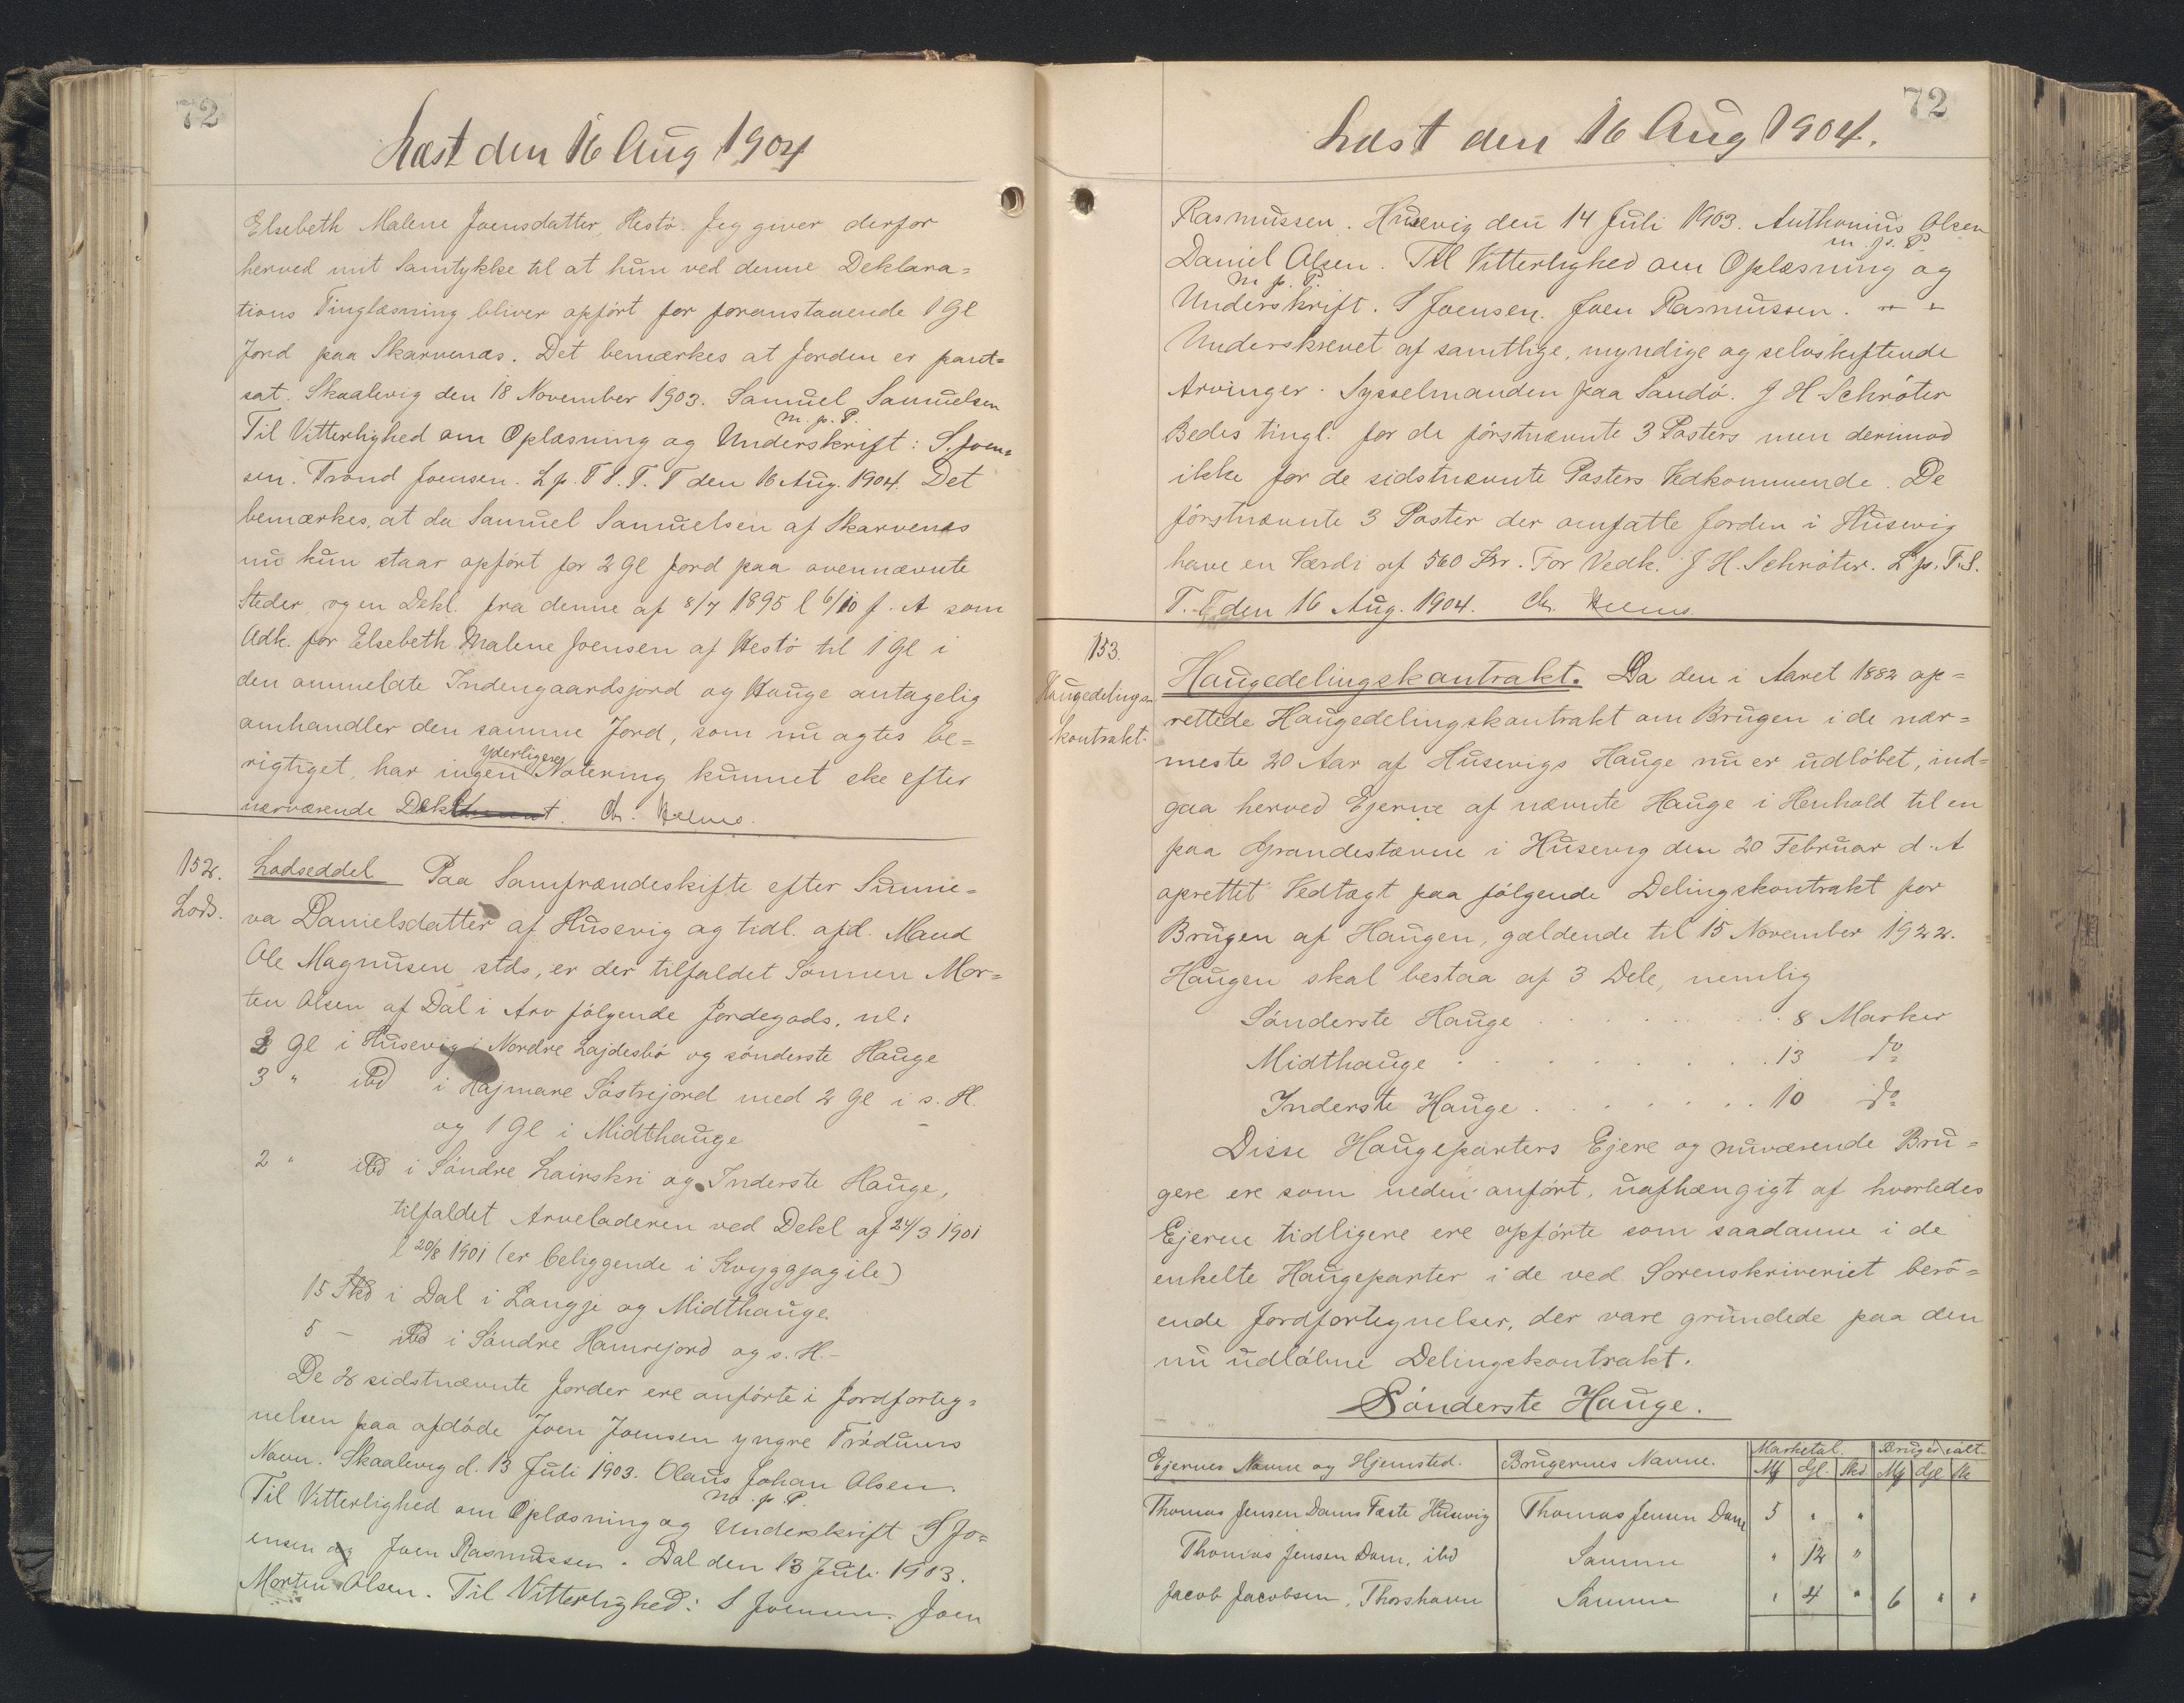 72
Læst den 16 Aug 1904
Elsebeth Malene Joensdatter, Hestö. Jeg giver derfor
herved mit Samtykke til at hun ved denne Deklara=
tions Tinglæsning bliver opfört for foranstaaende 1 Gl
Jord paa Skarvenæs. Det bemærkes at Jorden er pant=
sat. Skaalevig den 18 November 1903. Samuel Samuelsen
m. p. P.
Til Vitterlighed om Oplæsning og Underskrift: S. Joen=
sen. Trond Joensen. L p. T S. T. T den 16 Aug. 1904. Det
bemærkes, at da Samuel Samuelsen af Skarvenæs
nu kun staar opfört for 2 Gl Jord paa ovennævnte
Steder, og en Dekl. fra denne af 8/7 1895 l 6/10 f. A som
Adk. for Elsebeth Malene Joensen af Hestö til 1 Gl i
den ommeldte Indengaardsjord og Hauge antagelig
omhandler den samme Jord, som nu agtes be=
rigtiget, har ingen yderligere Notering kunnet ske efter
nærværende Dok. Ch. Helms.
152.
Lods.
Lodseddel Paa Samfrændeskifte efter Sunne=
va Danielsdatter af Husevig og tidl. afd. Mand
Ole Magnusen stds, er der tilfaldet Sönnen Mor=
ten Olsen af Dal i Arv fölgende Jordegods, nl:
2 Gl i Husevig i Nordre Lajdesbö og sönderste Hauge
3 " ibd i Hajmare Söstrejord med 2 Gl i s. H.
og 1 Gl i Midthauge
2 " ibd i Söndre Lairskri og Inderste Hauge,
tilfaldet Arveladeren ved Dekl af 24/3 1901
l 20/8 1901 (er beliggende i Kvyggjagile)
15 Skd i Dal i Langgje og Midthauge.
5 - ibd i Söndre Hamrejord og s. H.-
De 2 sidstnævnte Jorder ere anförte i Jordforteg=
nelsen paa afdöde Joen Joensen yngre Tröðums
Navn. Skaalevig d. 13 Juli 1903. Olaus Johan Olsen.
m. p. P.
Til Vitterlighed om Oplæsning og Underskrift S Jo=
ensen og Joen Rasmussen. Dal den 13 Juli 1903.
Morten Olsen. Til Vitterlighed: S Joensen. Joen
72
Læst den 16 Aug 1904.
Rasmussen. Husevig den 14 Juli 1903. Anthonius Olsen
m. p. P.
Daniel Olsen. Til Vitterlighed om Oplæsning og
m p. P.
Underskrift. S Joensen. Joen Rasmussen. - -
Underskrevet af samtlige, myndige og selvskiftende
Arvinger. Sysselmanden paa Sandö. J H Schröter
Bedes tingl. for de förstnævnte 3 Posters men derimod
ikke for de sidstnævnte Posters Vedkommende. De
förstnævnte 3 Poster der omfatte Jorden i Husevig
have en Værdi af 560 Kr. For Vedk. J H. Schröter. L p. T. S.
T. T den 16 Aug. 1904. Ch. Helms.
153.
Haugedelings
kontrakt.
Haugedelingskontrakt. Da den i Aaret 1882 op=
rettede Haugedelingskontrakt om Brugen i de nær=
meste 20 Aar af Husevigs Hauge nu er udlöbet, ind=
gaa herved Ejerne af nævnte Hauge i Henhold til en
paa Grandestævne i Husevig den 20 Februar d. A
oprettet Vedtægt paa fölgende Delingskontrakt for
Brugen af Haugen, gældende til 15 November 1922.
Haugen skal bestaa af 3 Dele, nemlig
Sönderste Hauge . . . . . . 8 Marker
Midthauge . . . . . . . 13 do
Inderste Hauge . . . . . . 10 do
Disse Haugeparters Ejere og nuværende Bru=
gere ere som neden anfört, uafhængigt af hvorledes
Ejerne tidligere ere opförte som saadanne i de
enkelte Haugeparter i de ved Sorenskriveriet berö=
ende Jordfortegnelser, der vare grundede paa den
nu udlöbne Delingskontrakt.
Sönderste Hauge.
Ejernes Navne og Hjemsted. Brugernes Navne. Marketal. Bruges ialt.
Mk Gl. Skd Mk Gl Sk
Thomas Jensen Dams Fæste Husevig Thomas Jensen Dam 5 " "
Thomas Jensen Dam, ibd Samme " 12 "
Jacob Jacobsen, Thorshavn Samme " 4 " 6 " "